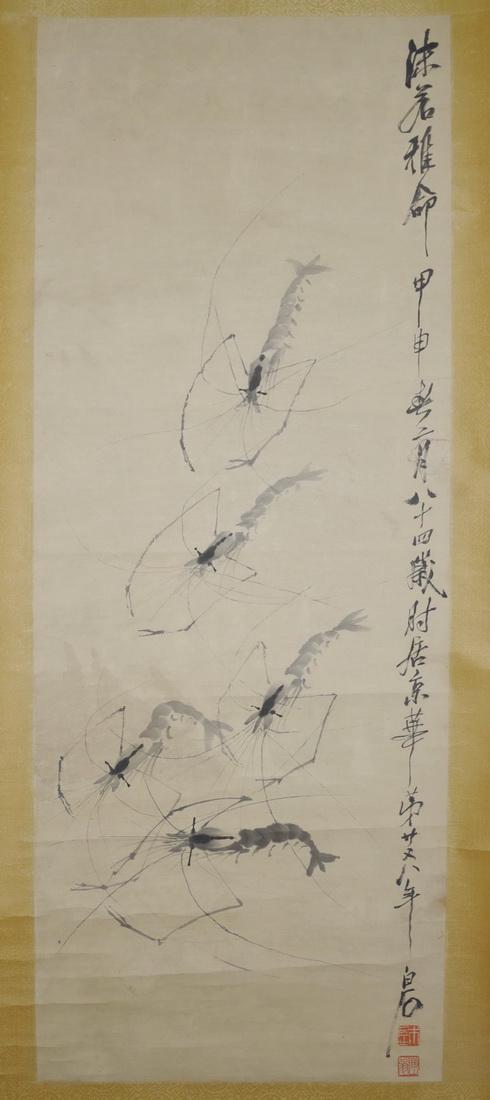 沫若雅命甲申春二月八十四歲時居京華第廿又八年白石